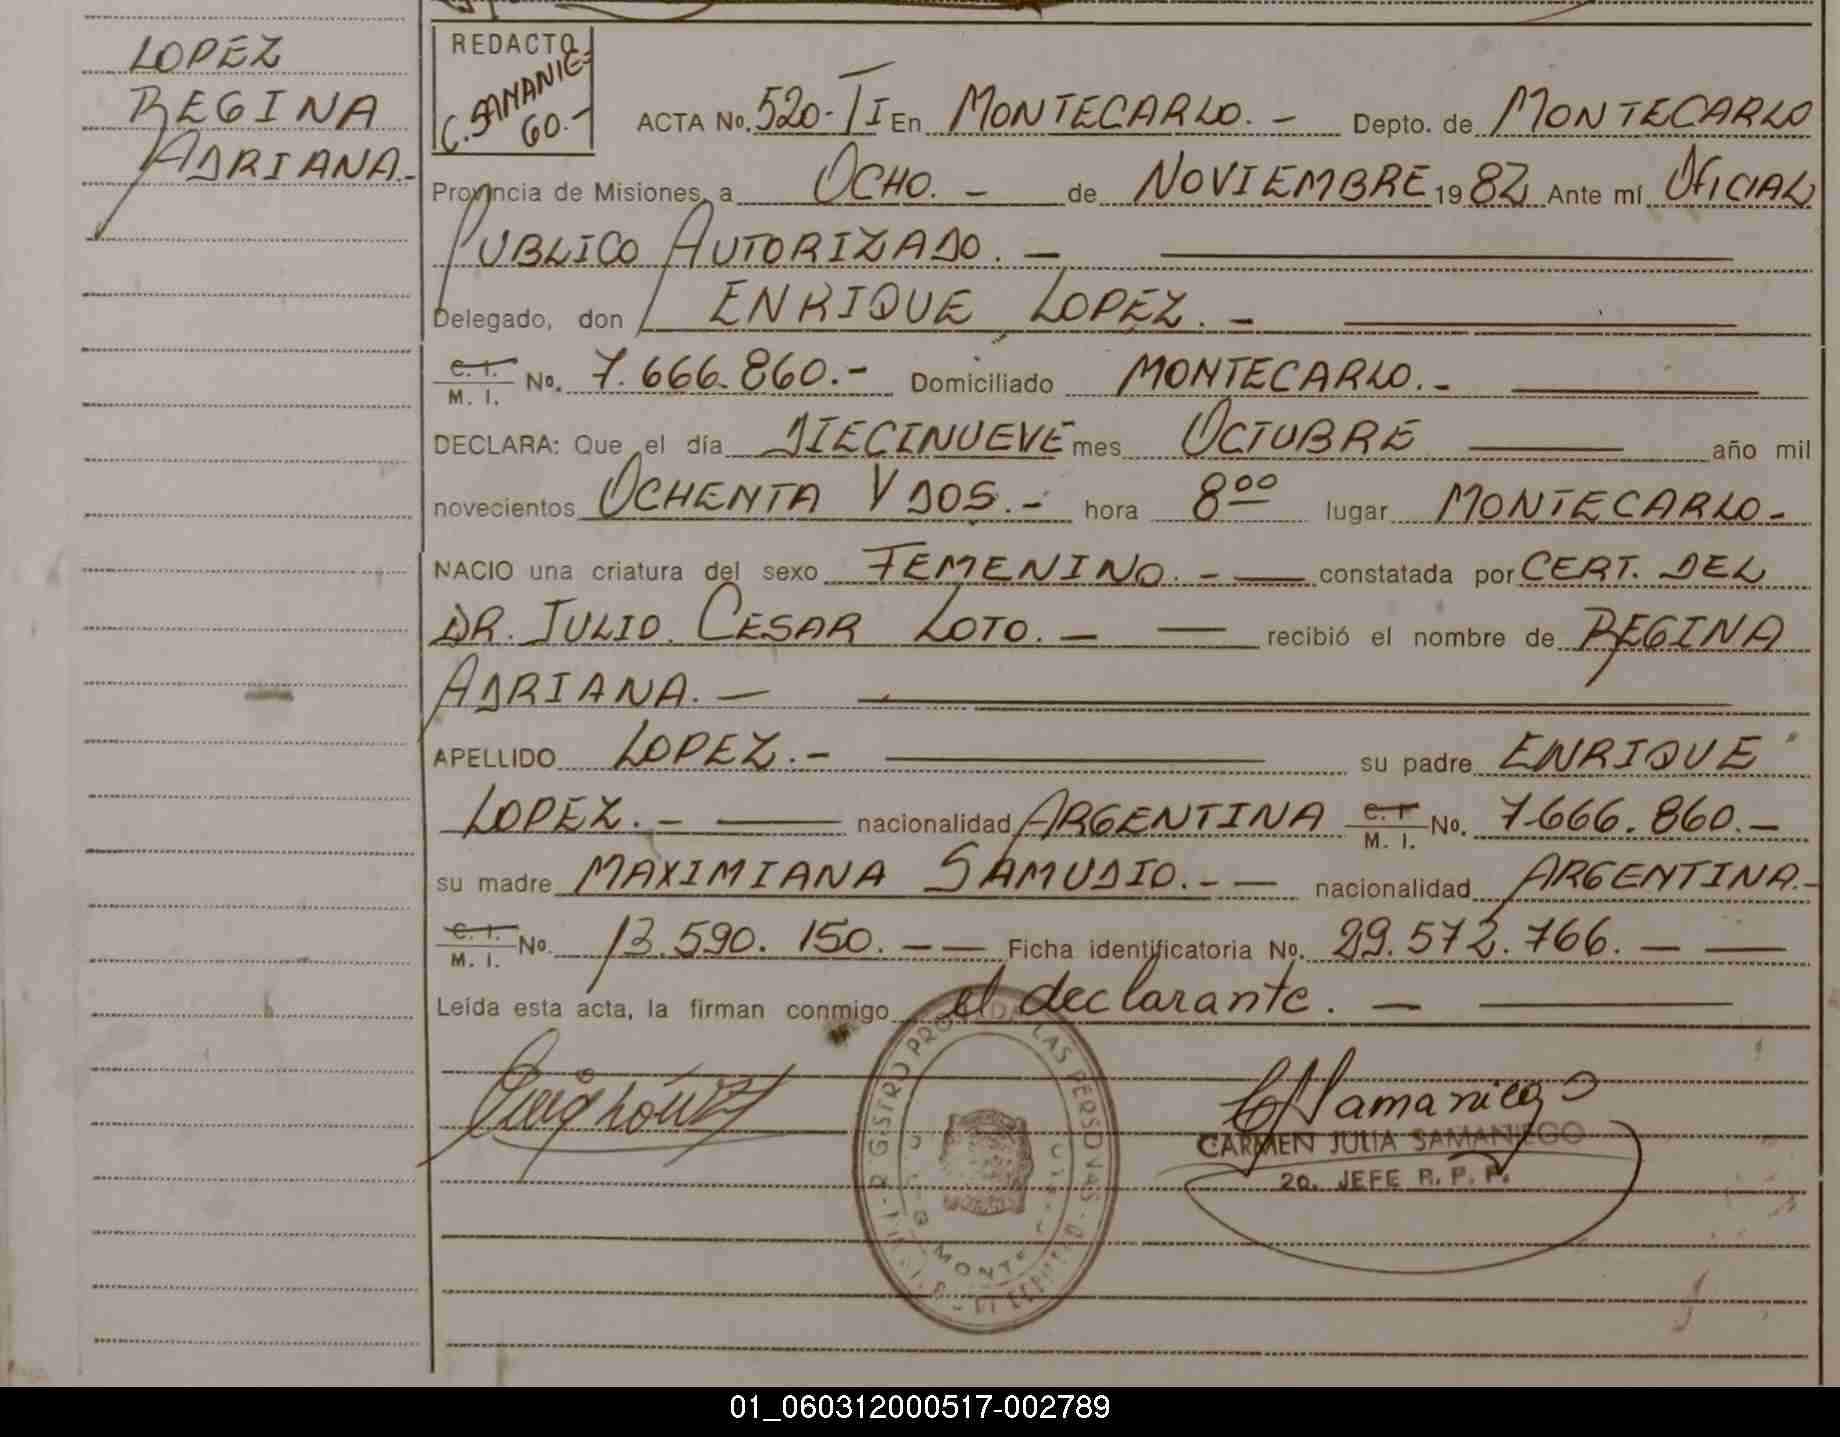 LOPEZ
REGINA
ADRIANA.-
REDACTO
C. SAMANIE=
GO.-
ACTA No. 520-TI En MONTECARLO. - Depto. de MONTECARLO
Provincia de Misiones, a OCHO. - de NOVIEMBRE 1982 Ante mí OFICIAL
PUBLICO AUTORIZADO. -
Delegado, don ENRIQUE LOPEZ. -
C. I.
M. I. No. 7.666.860.- Domiciliado MONTECARLO.-
DECLARA: Que el día DIECINUEVE mes OCTUBRE año mil
novecientos OCHENTA Y DOS.- hora 800 lugar MONTECARLO-
NACIO una criatura del sexo FEMENINO.- constatada por CERT. DEL
DR. JULIO CESAR LOTO. - recibió el nombre de REGINA
ADRIANA. -
APELLIDO LOPEZ.- su padre ENRIQUE
LOPEZ. - nacionalidad ARGENTINA C. I. M. I. No. 7.666.860.-
su madre MAXIMIANA SAMUDIO. - - nacionalidad ARGENTINA.-
C. I.
M. I. No. 13.590.150. - - Ficha identificatoria No. 29.572.766. - -
Leída esta acta, la firman conmigo el declarante. -
REGISTRO PROV. DE LAS PERSONAS
MONTE
CJSamaniego
CARMEN JULIA SAMANIEGO
2o. JEFE R. P. P.
01_060312000517-002789